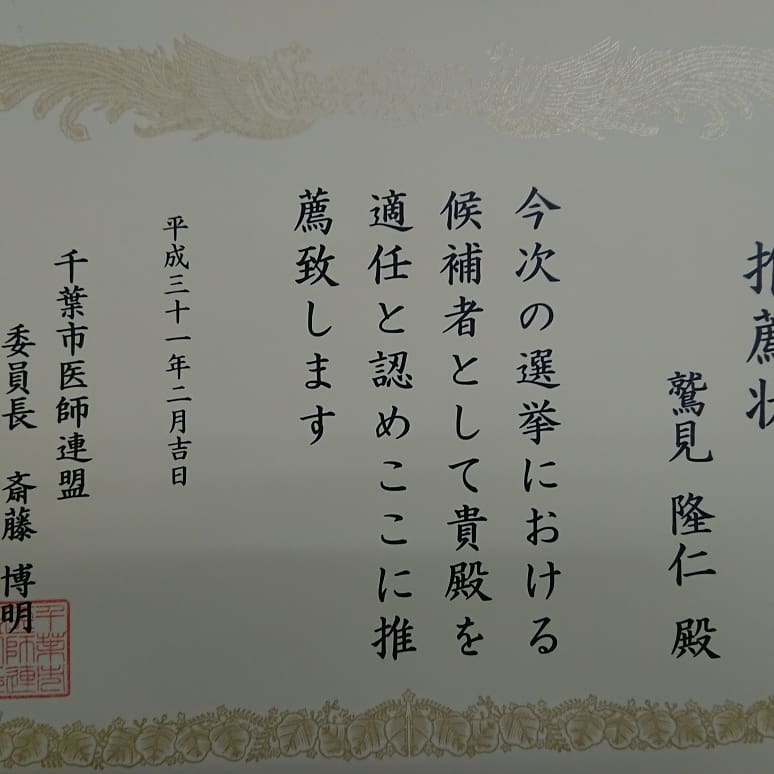 推薦状
鷲見 隆仁 殿
今次の選挙における
候補者として貴殿を
適任と認めここに推
薦致します
平成三十一年二月吉日
千葉市医師連盟
委員長 斎藤 博明